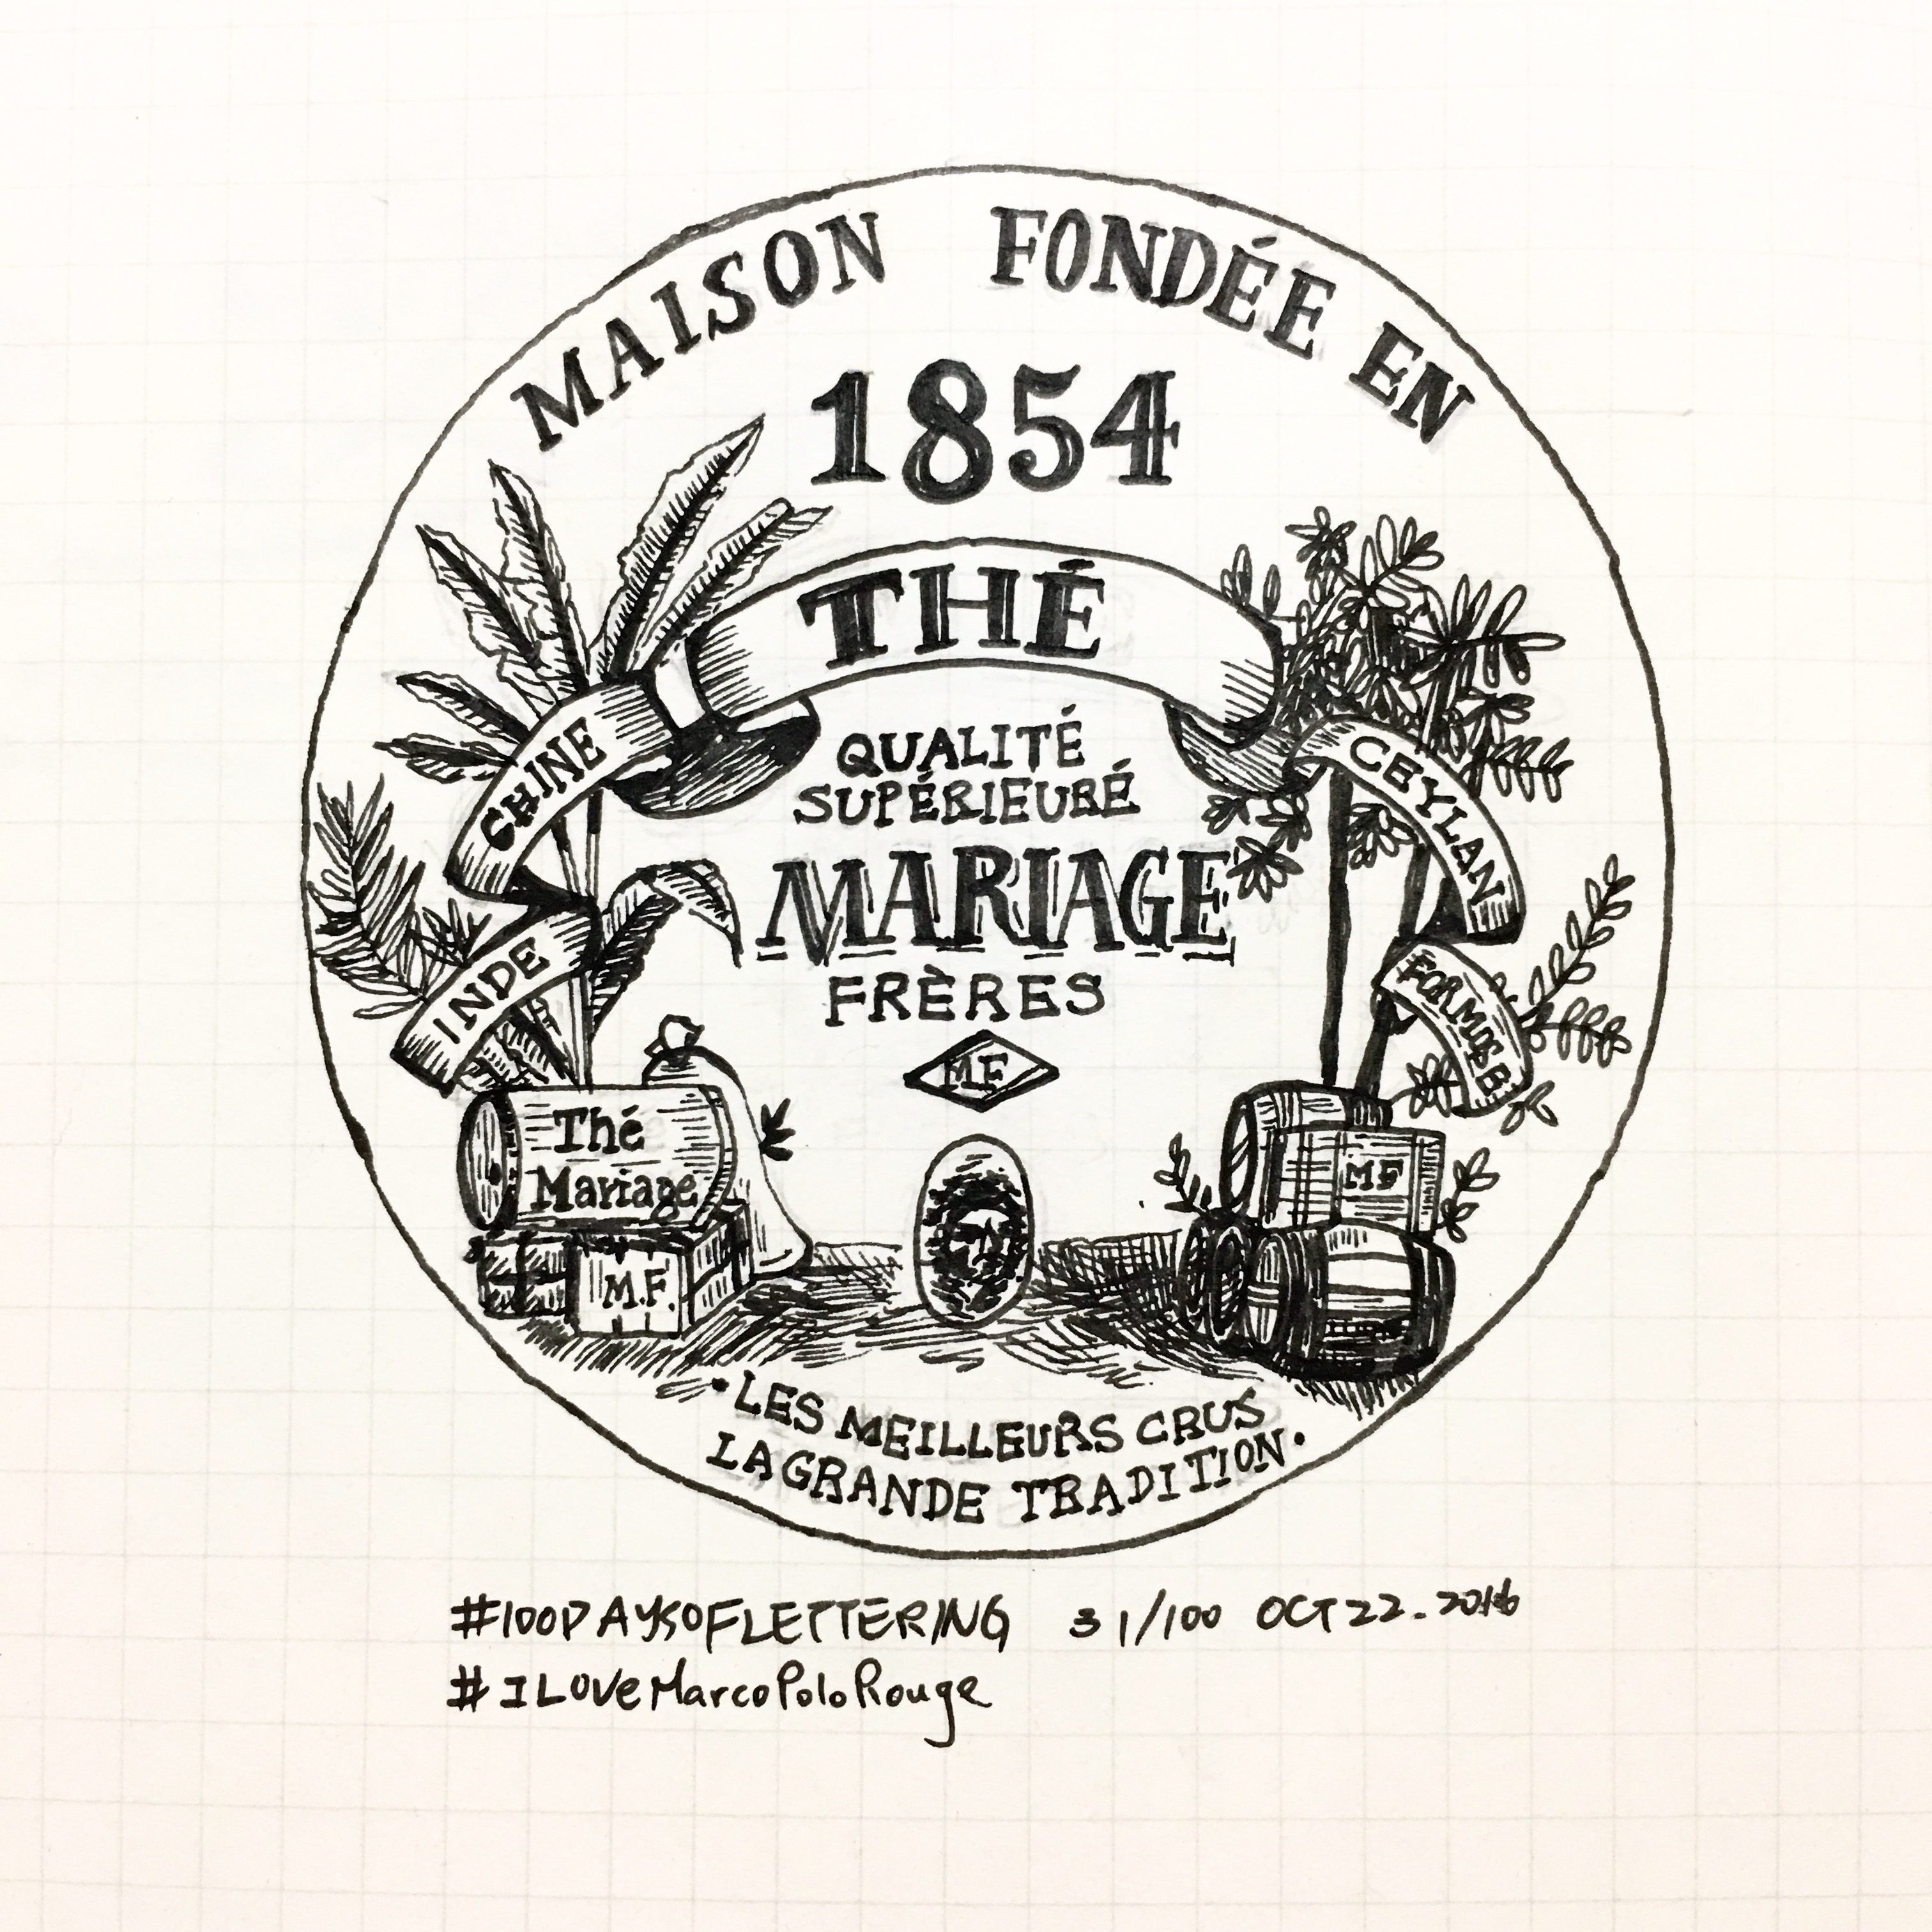 MAISON FONDÉE EN
1854
THÉ
CHINE
CEYLAN
INDE
FORMOSE
QUALITÉ
SUPÉRIEURÉ
MARIAGE
FRÈRES
MF
Thé
Mariage
M.F.
MF
·LES MEILLEURS CRUS
LA GRANDE TRADITION·
#100DAYSOFLETTERING 31/100 OCT 22. 2016
#ILoveMarcoPoloRouge